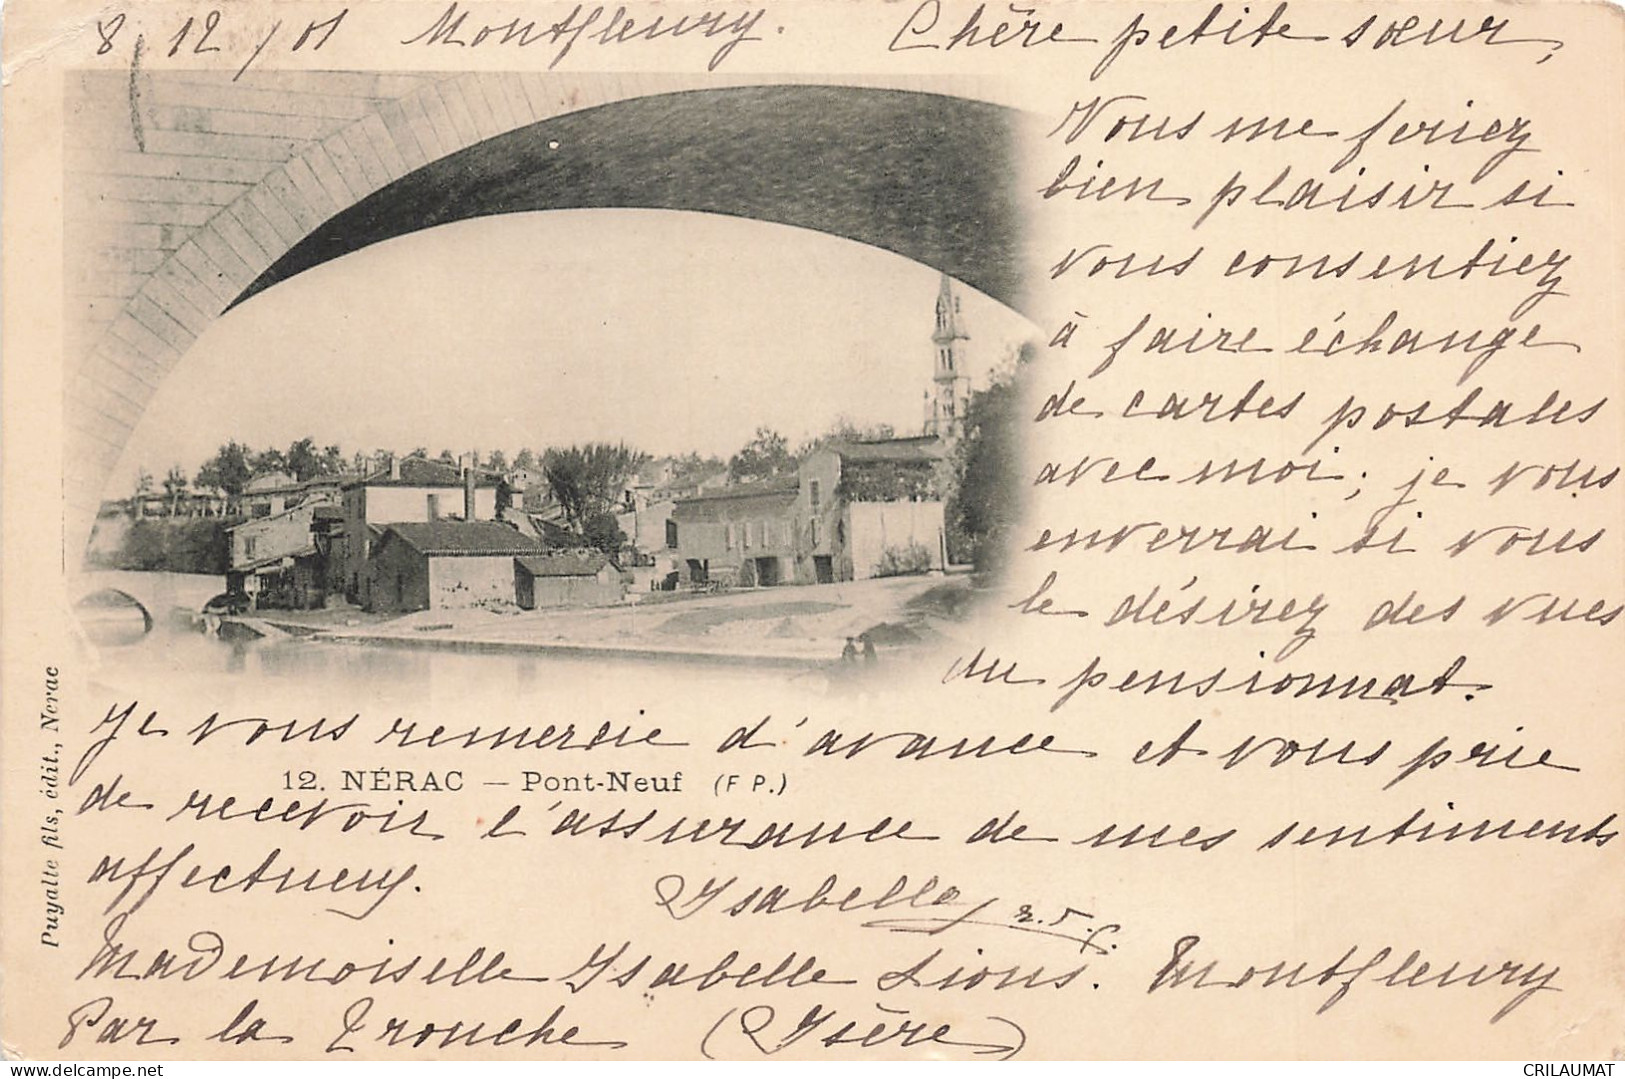 8/12/01 Montfleury. Chère petite sœur,
Vous me feriez
bien plaisir si
vous consentiez
à faire échange
de cartes postales
avec moi; je vous
enverrai si vous
le désirez des vues
du pensionnat.
Je vous remercie d'avance et vous prie
12. NÉRAC — Pont-Neuf (F P.)
de recevoir l'assurance de mes sentiments
affectueux.
Isabelle
Mademoiselle Isabelle Lions. Montfleury
Par la Tronche (Isère)
Puyalte fils, édit., Nerac
CRILAUMAT